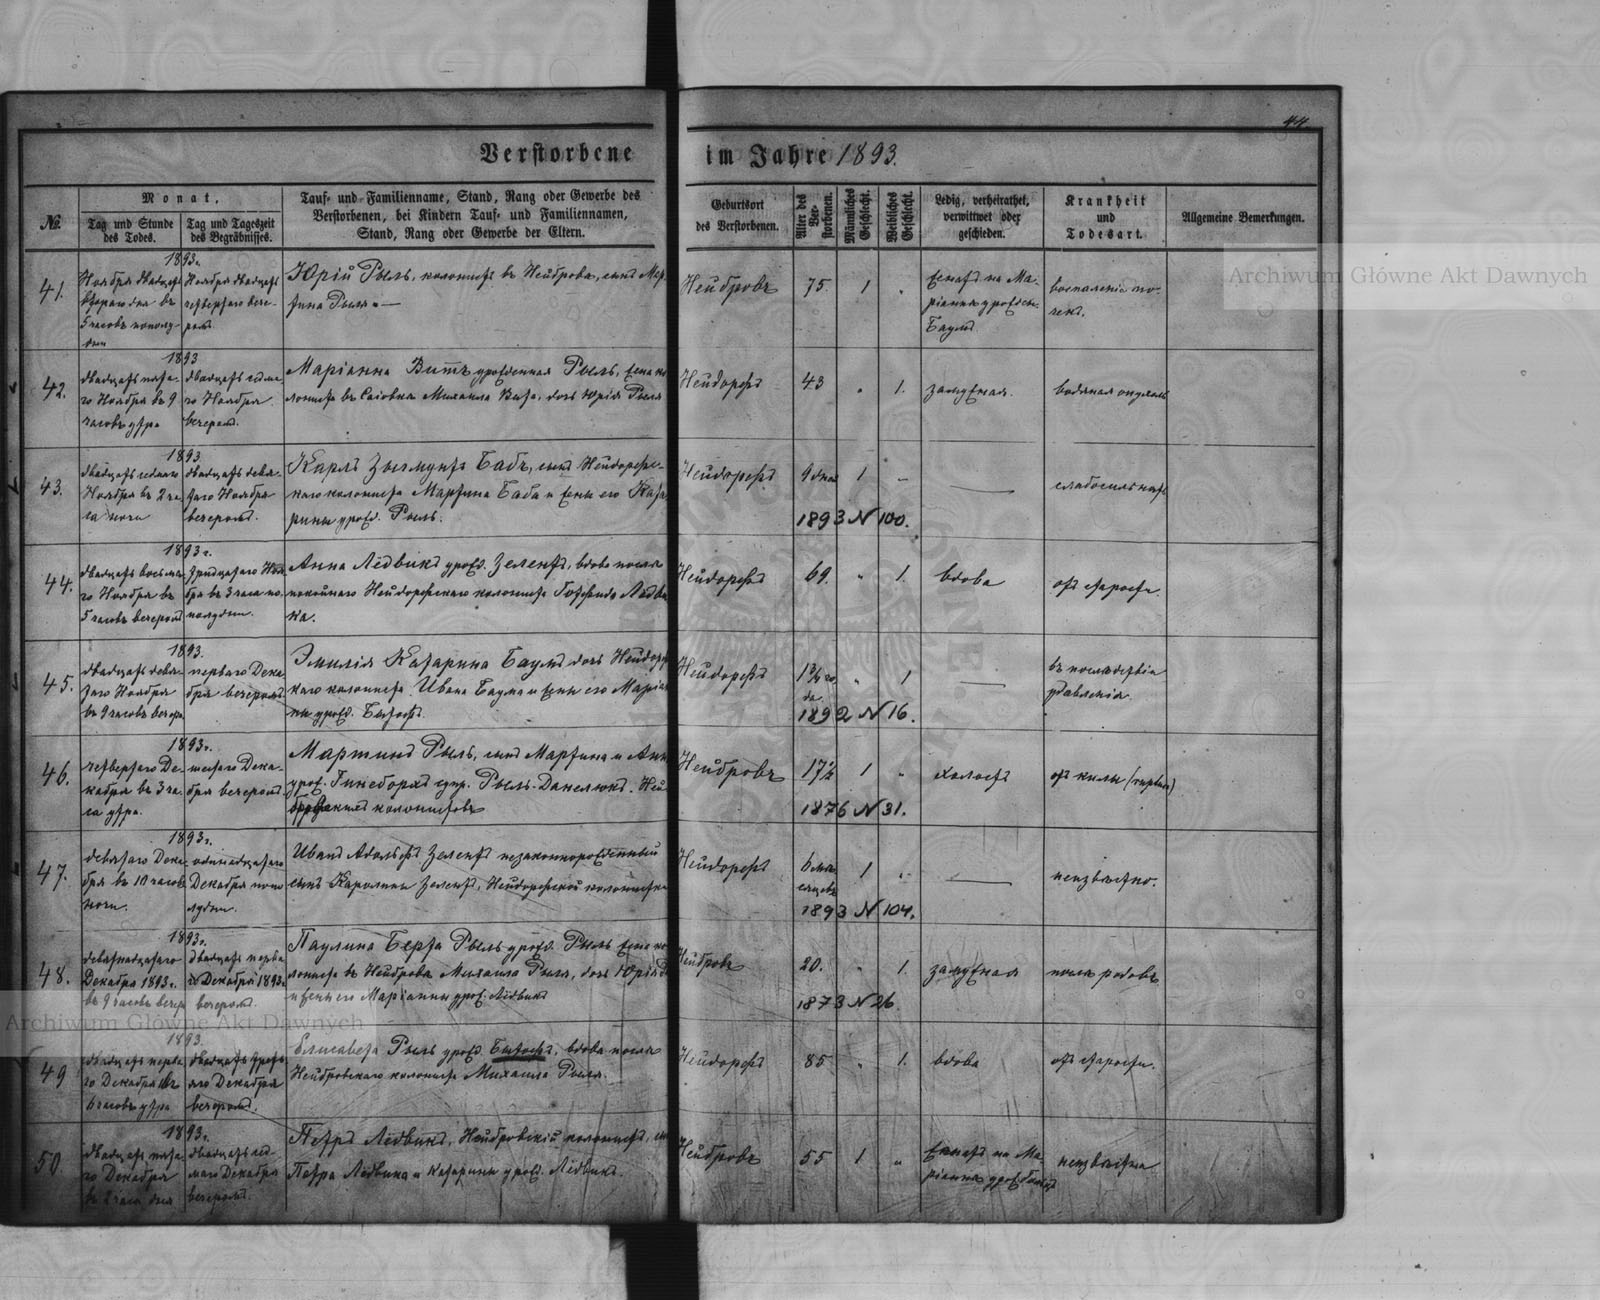 44.
Verstorbene im Jahre 1893.
№.
Monat.
Tag und Stunde des Todes.
Tag und Tageszeit des Begräbnisses.
Tauf- und Familienname, Stand, Rang oder Gewerbe des
Verstorbenen, bei Kindern Tauf- und Familiennamen,
Stand, Rang oder Gewerbe der Eltern.
Geburtsort
des Verstorbenen.
Alter des Verstorbenen.
Männliches Geschlecht.
Weibliches Geschlecht.
Ledig, verheirathet,
verwittwet oder
geschieden.
Krankheit
und
Todesart.
Allgemeine Bemerkungen.
Archiwum Główne Akt Dawnych
1893г.
41.
Ноября двадцать
втораго дня въ
5 часовъ пополу-
дни
Ноября двадцать
четвертаго вече-
ромъ
Юрій Рыль, колонистъ въ Нейбровѣ, сынъ Мар-
тина Рыля. —
Нейбровъ
75.
1
"
Женатъ на Ма-
ріаннѣ урожден.
Баумъ
воспаленіе по-
чекъ.
1893
42.
двадцать пята-
го Ноября въ 9
часовъ утра
двадцать седма-
го Ноября
вечеромъ.
Маріанна Витъ урожденная Рыль, жена ко
лониста въ Михаила Вита, дочь Юрія Рыля
Нейдорфъ
43
"
1.
замужная.
водяная опухоль
1893
43.
двадцать седмаго
Ноября въ 2 ча-
са ночи
двадцать девя-
таго Ноября
вечеромъ.
Карль Зыгмунтъ Бабъ, сынъ Нейдорфс-
каго колониста Мартина Баба и жены его Ката
рины урожд. Рыль.
Нейдорфъ
9 дней
1
"
1893 N 100.
слабосильность
1893г.
44.
двадцать восьма-
го Ноября въ
5 часовъ вечеромъ
тридцатаго Ноя
бря въ 3 часа по-
полудни.
Анна Лёдвикъ урожд. Зелентъ, вдова после
покойнаго Нейдорфскаго колониста Готфрида Лёдви
ка.
Нейдорфъ
69.
"
1.
вдова
отъ старости.
1893.
45.
двадцать девя-
таго Ноября
въ 9 часовъ вечера
перваго Дека
бря вечеромъ
Эмилія Катарина Баумъ дочь Нейдорфс
каго колониста Ивана Баума и жены его Маріан
ны урожд. Бытофъ.
Нейдорфъ
1¾ го
да
"
1
1892 N 16.
въ последствіи
удавленія.
1893г.
46.
четвертаго Де-
кабря въ 3 ча-
са утра.
шестаго Дека-
бря вечеромъ
Мартинъ Рыль, сынъ Мартина и Анны
урожд. супр. Рыль-Данелюкъ. Ней
колонистовъ
Нейбровъ
17½
1
"
холостъ
1876 N 31.
отъ килы
1893г.
47.
девятаго Дека-
бря въ 10 часовъ
ночи.
одинадцатаго
Декабря попо
лудни.
Иванъ Адольфъ Зелентъ незаконнорожденный
сынъ Каролины Зелентъ, Нейдорфской колонистки
Нейдорфъ
6 мѣ-
сяцевъ
1
"
1893 N 104.
неизвѣстно.
1893г.
48.
девятнадцатаго
Декабря 1893г.
въ 9 часовъ вечер
двадцать перва
го Декабря 1893г.
вечеромъ.
Паулина Берта Рыль урожд. Рыль жена ко
лониста въ Нейбровѣ Михаила Рыля, дочь Юрія Р
и жены его Маріанны урожд. Лёдвикъ
Нейбровъ
20.
"
1.
замужная
1873 N 26.
после родовъ
Archiwum Główne Akt Dawnych
1893.
49
двадцать перва
го Декабря въ
6 часовъ утра
двадцать треть
яго Декабря
вечеромъ.
Елисавета Рыль урожд. Бытофъ, вдова после
Нейбровскаго колониста Михаила Рыля.
Нейдорфъ
85
"
1.
вдова
отъ старости.
1893г.
50
двадцать пята-
го Декабря
въ 2 часа дня
двадцать сед-
маго Декабря
вечеромъ.
Петръ Лёдвикъ, Нейбровскій колонистъ, сы
Петра Лёдвика и Катарины урожд. Лёдвикъ.
Нейбровъ
55
1
"
Женатъ на Ма
ріаннѣ урожд.
неизвѣстна